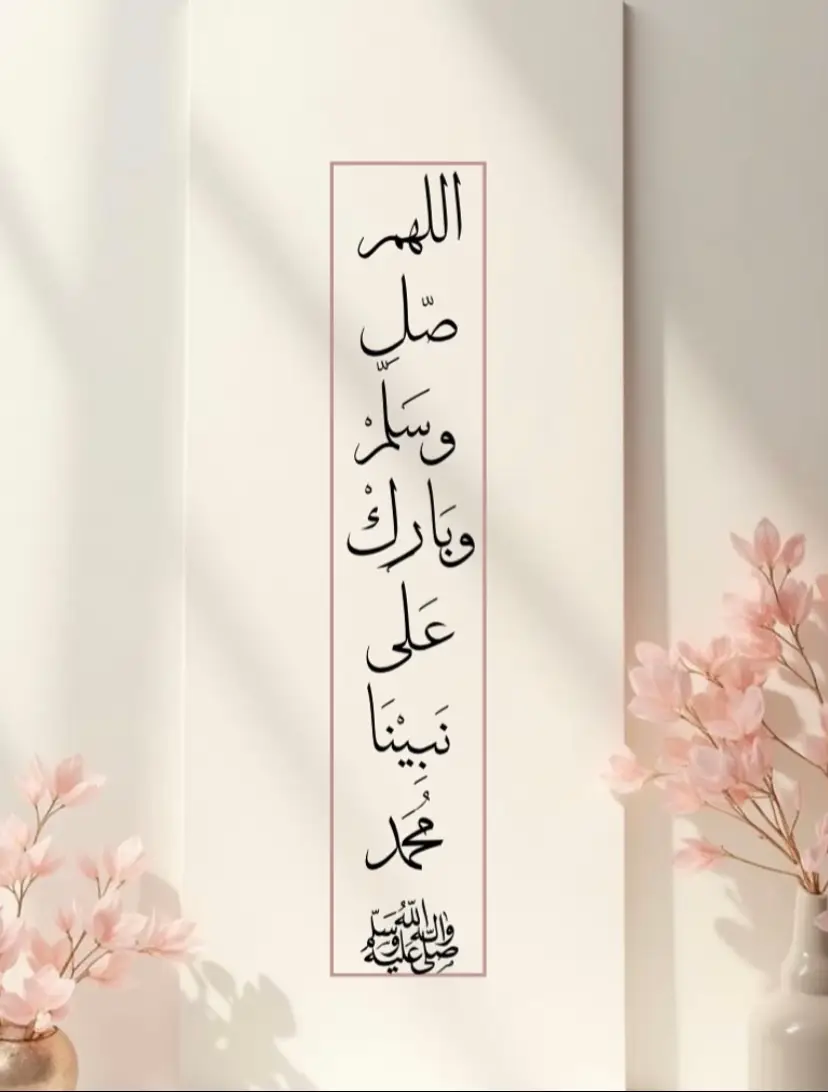 اللهم
صّل
وَسَلّمْ
وبَاركْ
عَلى
نَبِيْنَا
مُحَمَد
صلى الله عليه وآله وسلم